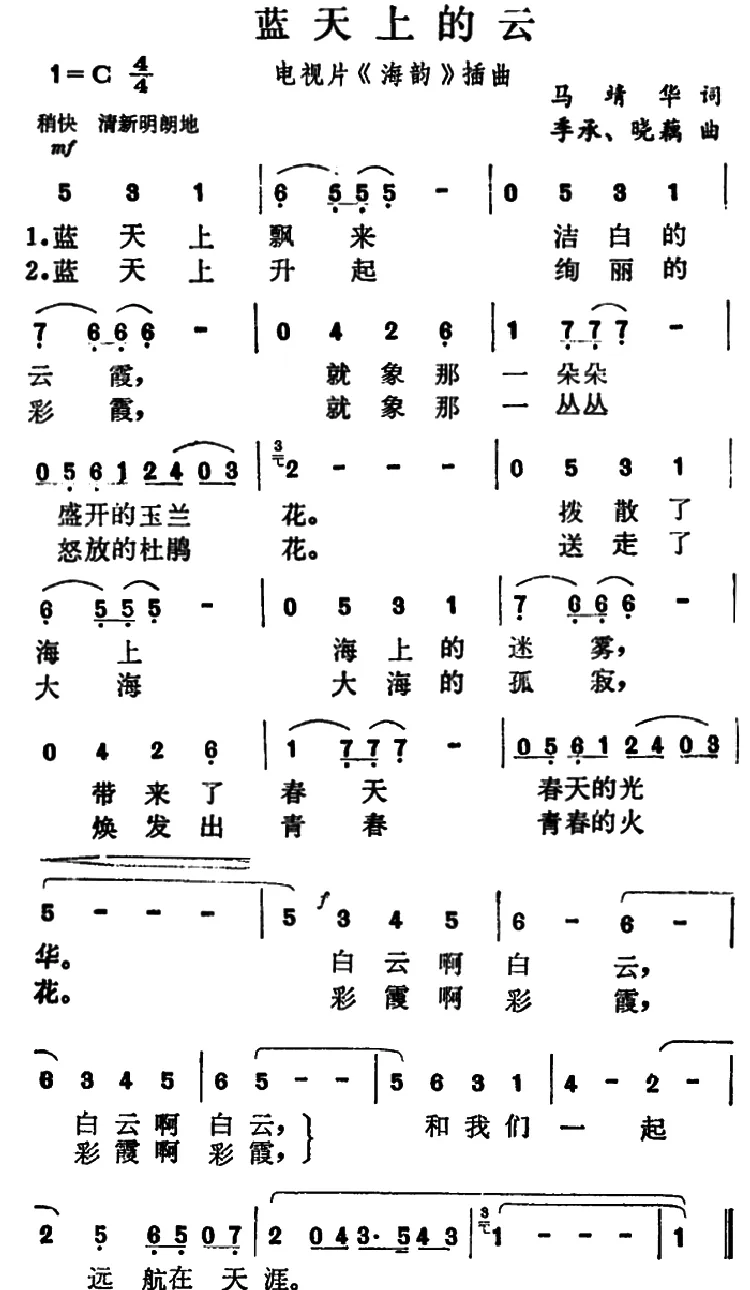 蓝天上的云
1=C 4/4 电视片《海韵》插曲
马靖华 词
稍快 清新明朗地 季承、晓藕 曲
mf
5 3 1 | 6 5 5 5 - | 0 5 3 1 |
1.蓝天上飘来 洁白的
2.蓝天上升起 绚丽的
7 6 6 6 - | 0 4 2 6 | 1 7 7 7 - |
云霞, 就象那一朵朵
彩霞, 就象那一丛丛
0 5 6 1 2 4 0 3 | 3 2 - - - | 0 5 3 1 |
盛开的玉兰 花。 拨散了
怒放的杜鹃 花。 送走了
6 5 5 5 - | 0 5 3 1 | 7 6 6 6 - |
海上 海上的迷雾,
大海 大海的孤寂,
0 4 2 6 | 1 7 7 7 - | 0 5 6 1 2 4 0 3 |
带来了春天 春天的光
焕发出青春 青春的火
5 - - - | 5 f 3 4 5 | 6 - 6 - |
华。 白云啊白云,
花。 彩霞啊彩霞,
6 3 4 5 | 6 5 - - | 5 6 3 1 | 4 - 2 - |
白云啊白云,} 和我们一起
彩霞啊彩霞,
2 5 6 5 0 7 | 2 0 4 3· 5 4 3 | 3 1 - - - | 1 ‖
远航在天涯。